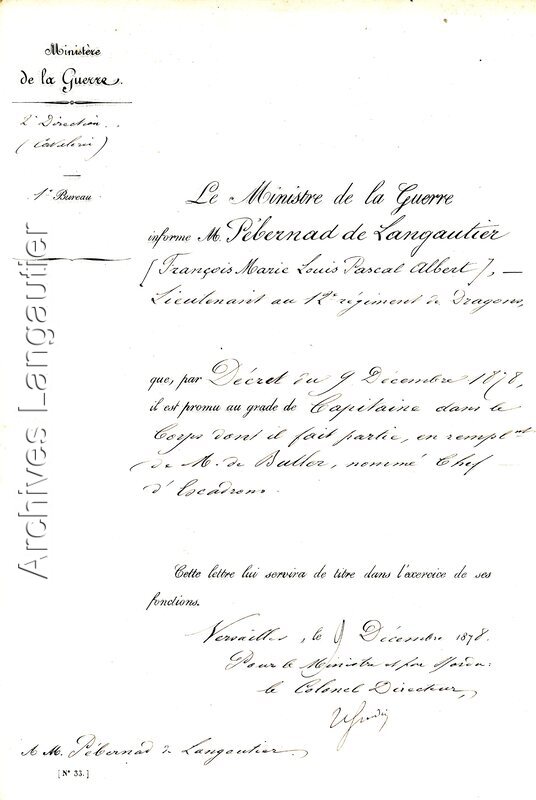 Ministère
de la Guerre.
2e Direction.
(Cavalerie)
1er Bureau
Archives Langautier
Le Ministre de la Guerre
informe M. Pébernad de Langautier
[François Marie Louis Pascal Albert], —
Lieutenant au 12e régiment de Dragons,
que, par Décret du 9 Décembre 1878,
il est promu au grade de Capitaine dans le
Corps dont il fait partie, en remplt
de M. de Butler, nommé Chef
d'Escadrons.
Cette lettre lui servira de titre dans l'exercice de ses
fonctions.
Versailles, le 9 Décembre 1878.
Pour le Ministre et par ordre:
le Colonel Directeur,
A M. Pébernad de Langautier.
[N° 33.]